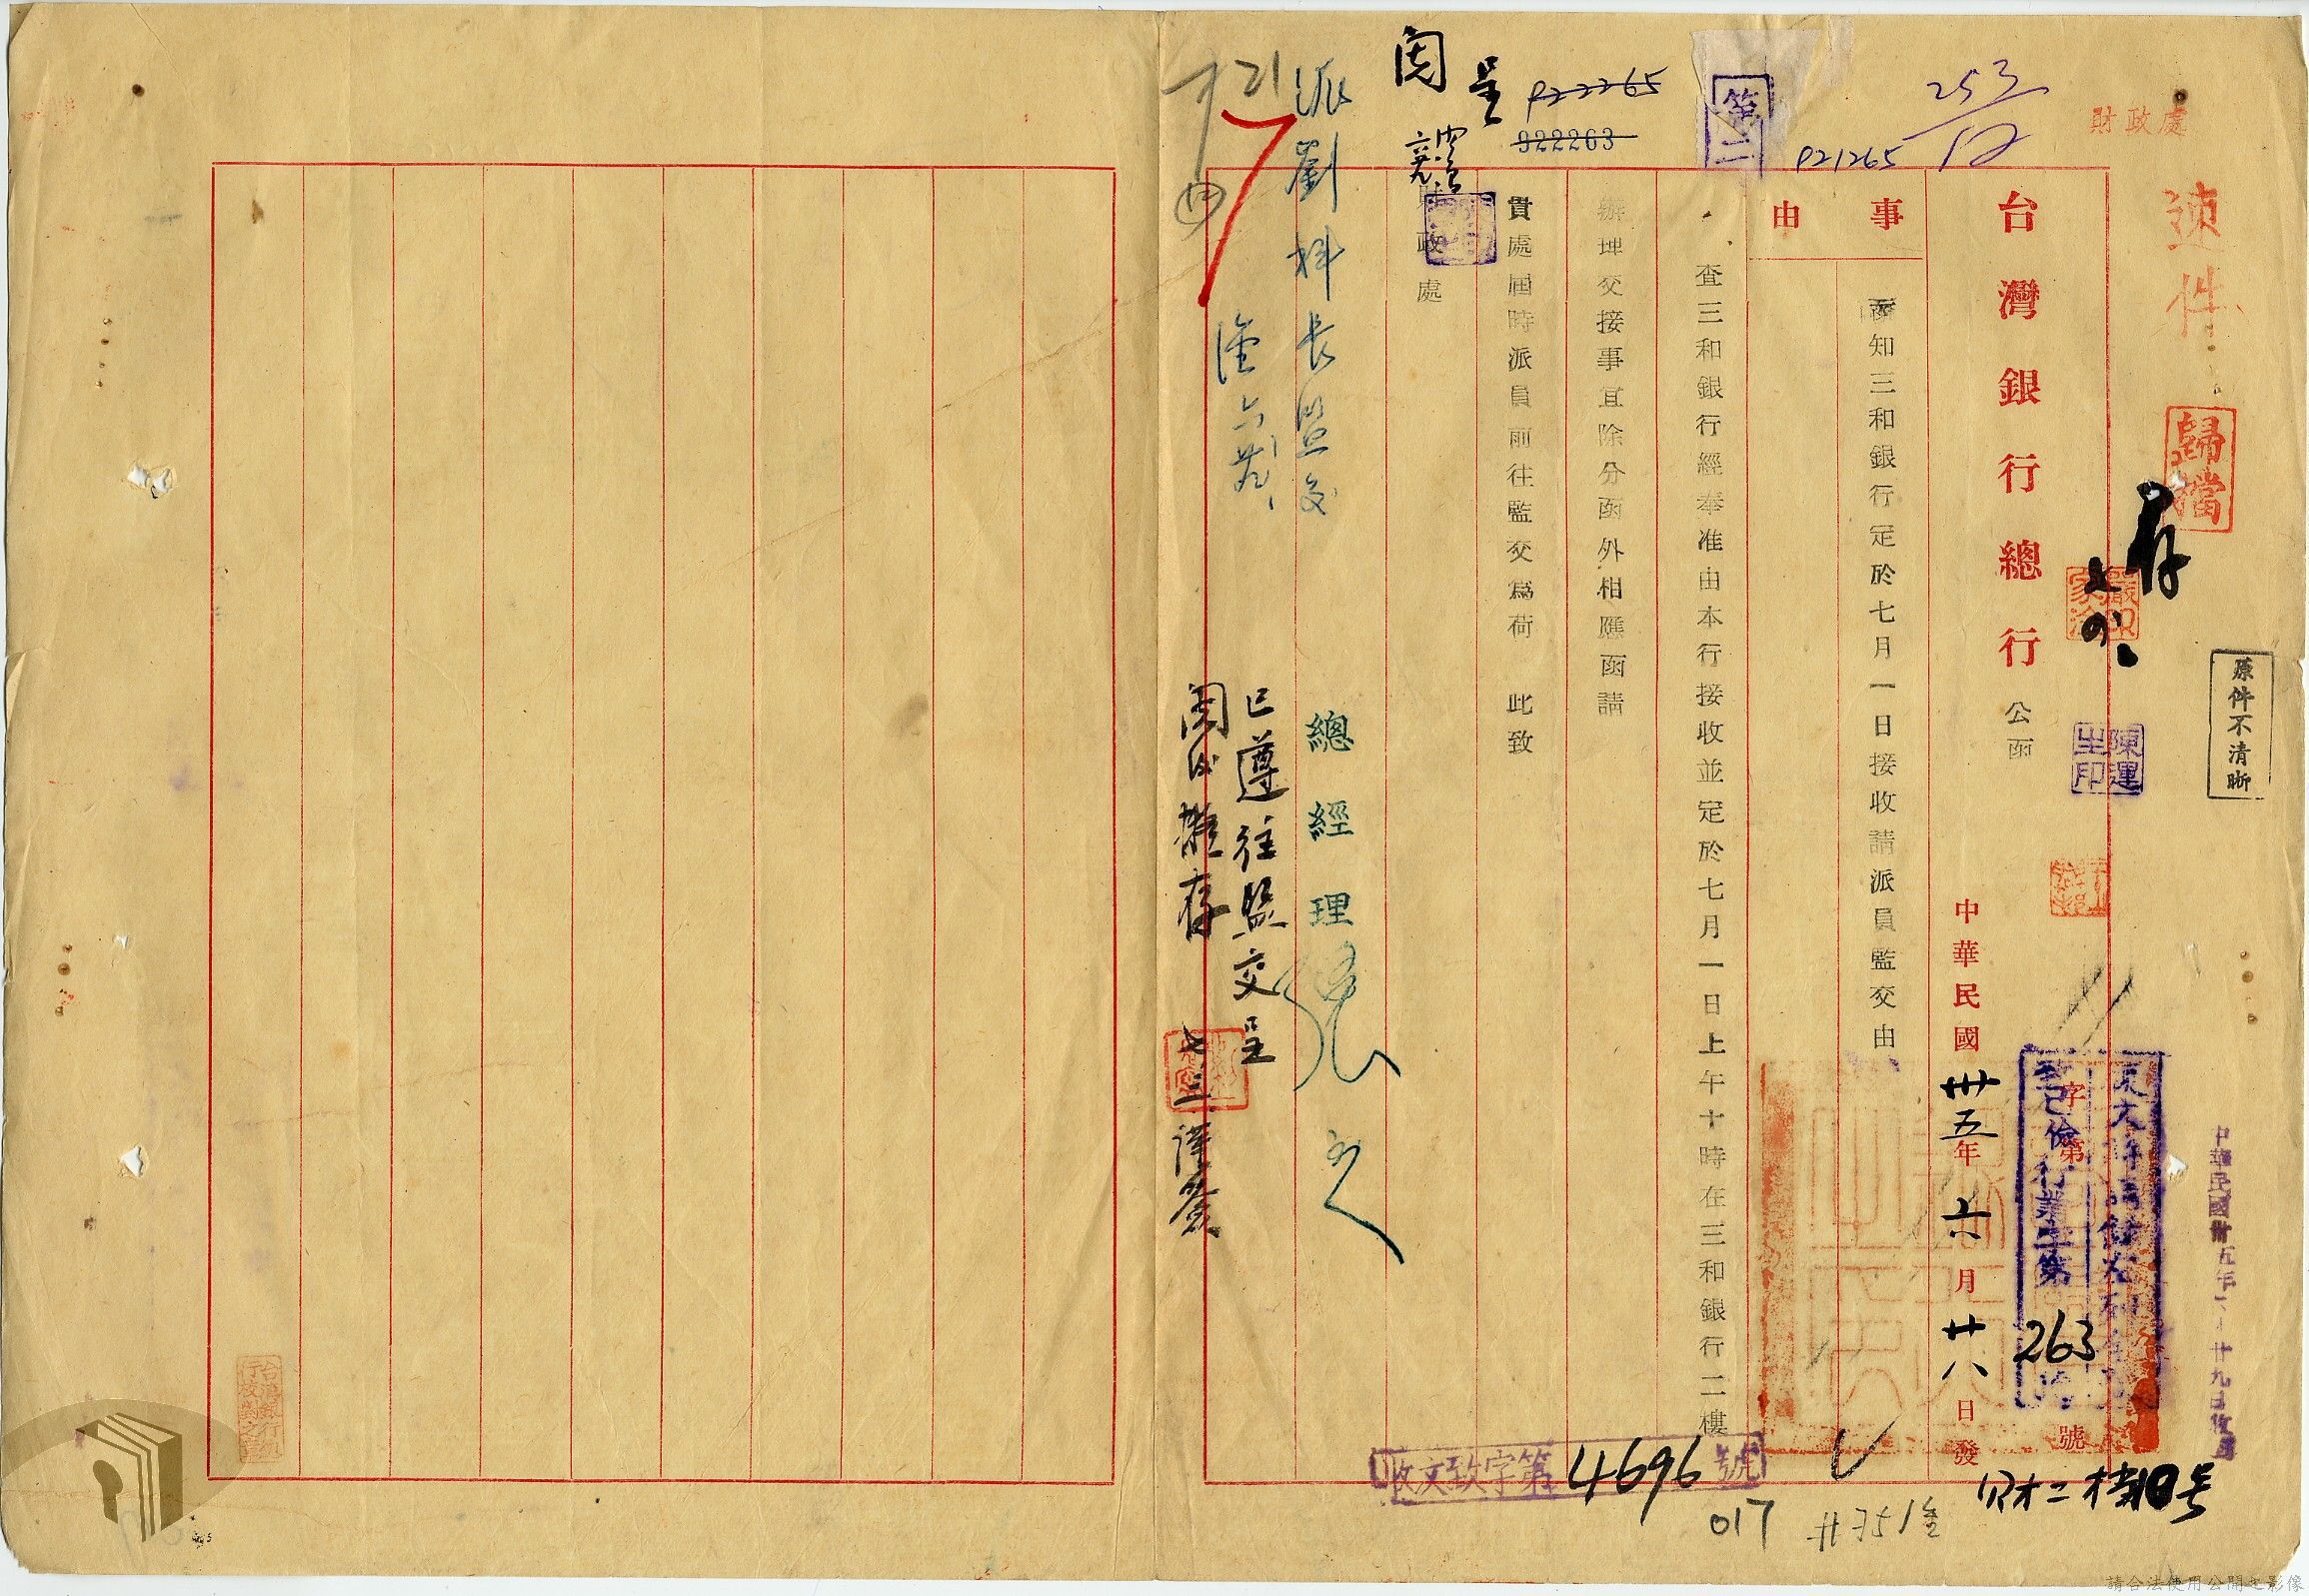 財政處
速件
歸檔
存
原件不清晰
陳運生印
嚴家淦印
台灣銀行總行公函
字第263號
中華民國卅五年六月廿八日發
中華民國卅五年六月廿九日收到
事由
函知三和銀行定於七月一日接收請派員監交由
查三和銀行經奉准由本行接收並定於七月一日上午十時在三和銀行二樓
辦理交接事宜除分函外相應函請
貴處屆時派員前往監交為荷 此致
財政處
總經理張
派劉科長監交
已遵往監交呈
閱後擬存
七三 謹簽
閱
呈
第二
253/12
P21265
P22265
922263
收文致字第4696號
017
財二档10号
請合法使用公開之影像